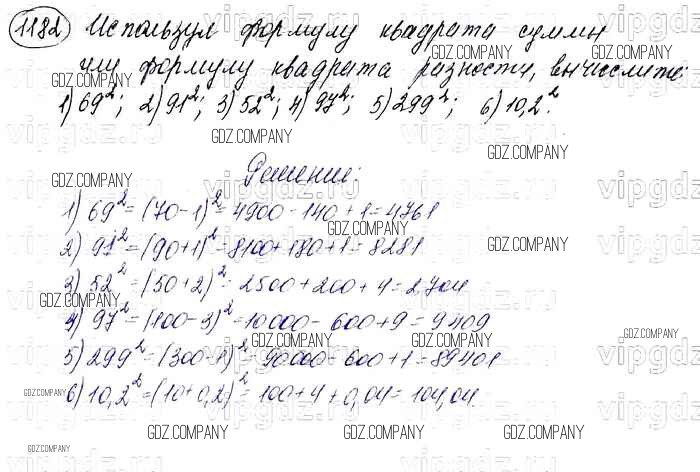 1182 Используя формулу квадрата суммы
или формулу квадрата разности, вычислите:
1) 69²; 2) 91²; 3) 52²; 4) 97²; 5) 299²; 6) 10,2².
Решение:
1) 69² = (70-1)² = 4900 - 140 + 1 = 4761
2) 91² = (90+1)² = 8100 + 180 + 1 = 8281
3) 52² = (50+2)² = 2500 + 200 + 4 = 2704
4) 97² = (100-3)² = 10000 - 600 + 9 = 9409
5) 299² = (300-1)² = 90000 - 600 + 1 = 89401
6) 10,2² = (10+0,2)² = 100 + 4 + 0,04 = 104,04.
GDZ.COMPANY
vipgdz.ru